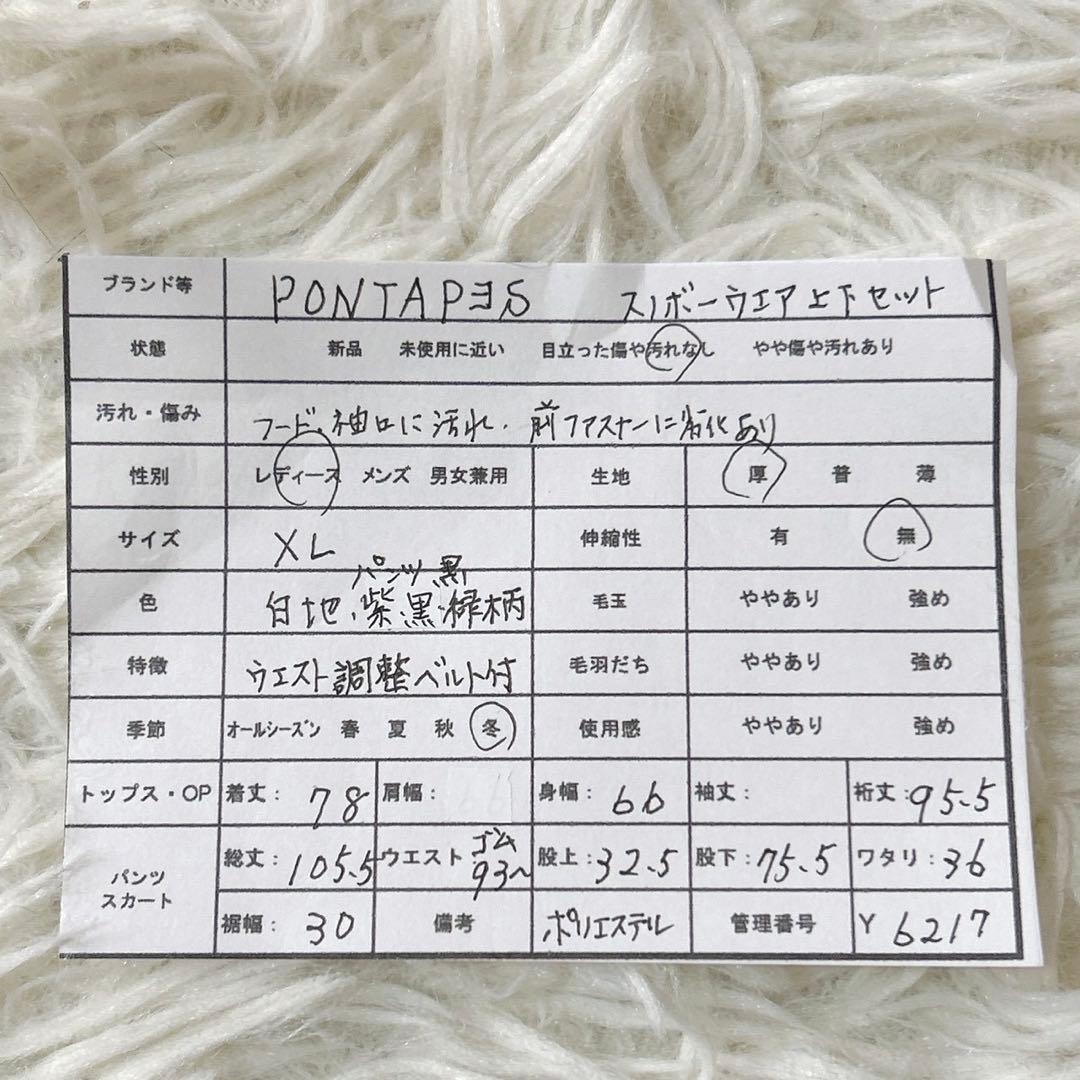 ブランド等 PONTAPES スノボーウエア上下セット
状態 新品 未使用に近い 目立った傷や汚れなし やや傷や汚れあり
汚れ・傷み フード、袖口に汚れ、前ファスナーに劣化あり
性別 レディース メンズ 男女兼用 生地 厚 普 薄
サイズ XL 伸縮性 有 無
パンツ 黒
色 白地、紫黒緑柄 毛玉 ややあり 強め
特徴 ウエスト調整ベルト付 毛羽だち ややあり 強め
季節 オールシーズン 春 夏 秋 冬 使用感 ややあり 強め
トップス・OP 着丈: 78 肩幅: 身幅: 66 袖丈: 裄丈: 95.5
パンツ スカート 総丈: 105.5 ウエスト ゴム 93~ 股上: 32.5 股下: 75.5 ワタリ: 36
裾幅: 30 備考 ポリエステル 管理番号 Y 6217